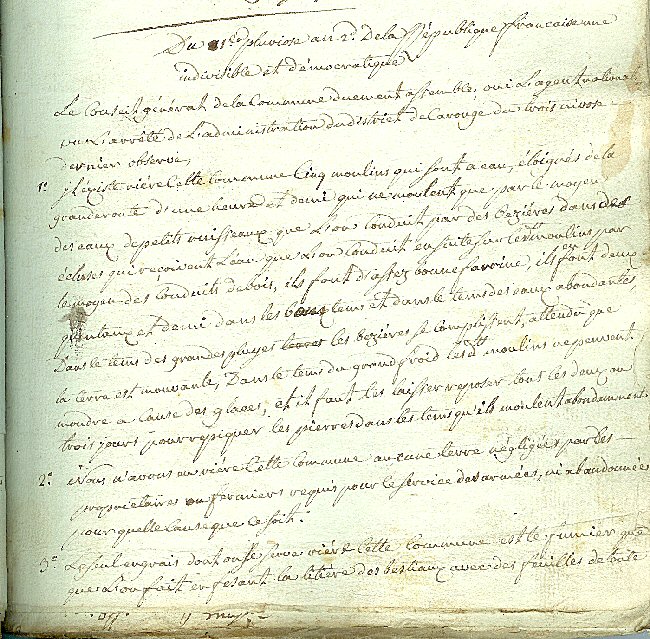 Du 21e pluviose an 2d. De la République francaise une
indivisible et démocratique
Le Conseil général de la Commune duement assemblé, oui L'agent national
vu L'arrêté de L'administration du district de Carouge du trois nivose
dernier observe,
1o. Il existe rière Cette Commune Cinq moulins qui sont a eau, éloignés de la
grande route d'une heure et demi qui ne moulent que par le moyen
des eaux de petits ruisseaux que L'on Conduit par des bezières dans des
écluses qui reçoivent L'eau que L'on Conduit ensuite sur Cesdts moulins par
le moyen des Conduits de bois, ils font d'assez bonne farine, ils en font deux
quintaux et demi dans les bons tems et dans le tems des eaux abondantes,
Dans le tems des grandes pluyes les bezières se Complissent, attendu que
la terre est mouvante, Dans le tems du grand froid lesdts moulins ne peuvent
moudre a Cause des glaces, et il faut les laisser reposer tous les deux ou
trois jours pour repiquer les pierres dans les tems qu'ils moulent abondamment.
2o. Nous n'avons rière Cette Commune aucune terre négligée par les
propriétaires ou fermiers requis pour le service des armées, ni abandonnée
pour quelle Cause que Ce soit.
3o. Le seul engrais dont on se serve rière Cette Commune est le fumier que
que L'on fait en fesant la litère des bestiaux avec des feuilles de toute